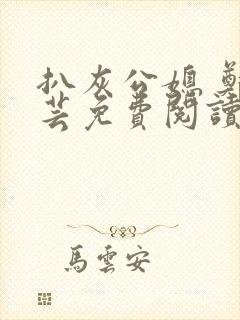 扒灰公媳
芸免費閱讀
馬雲安